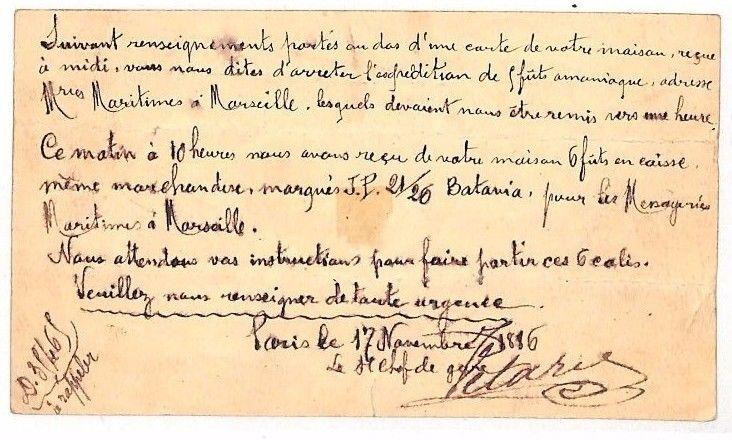 Suivant renseignements portés au dos d'une carte de votre maison, reçue
à midi, vous nous dites d'arreter l'expédition de 5 fûts amoniaque, adresse
Mries Maritimes à Marseille, lesquels devaient nous être remis vers une heure.
Ce matin à 10 heures nous avons reçu de votre maison 6 fûts en caisse,
même marchandise, marqués J.P. 21/26 Batavia, pour les Messageries
Maritimes à Marseille.
Nous attendons vos instructions pour faire partir ces 6 colis.
Veuillez nous renseigner de toute urgence.
Paris le 17 Novembre
Le S Chef de gare
à rappeler